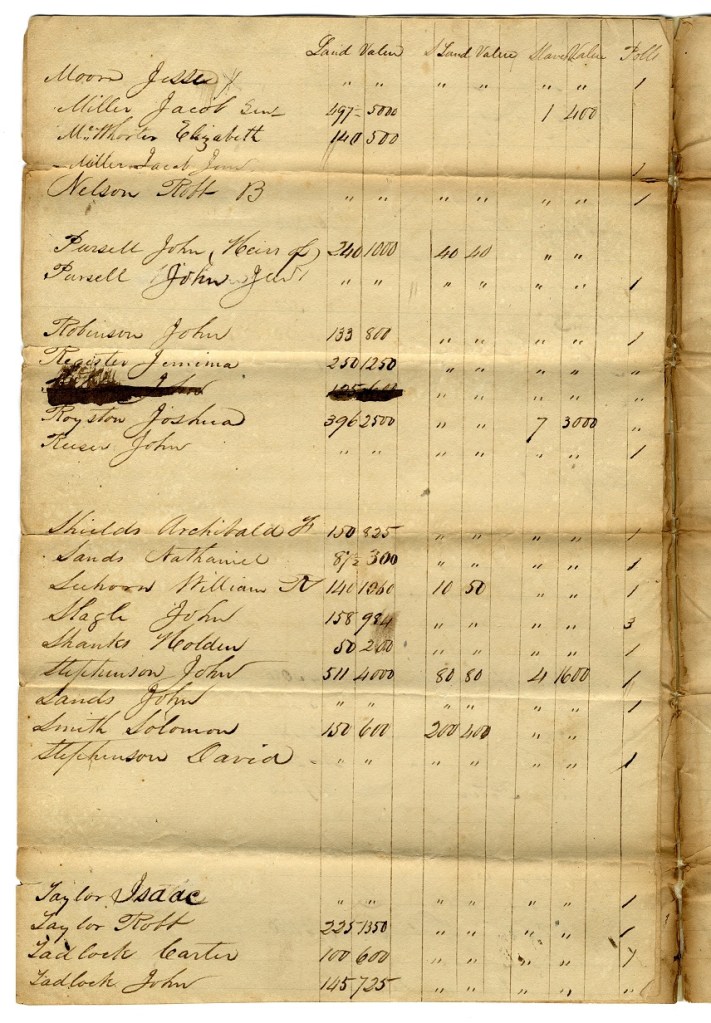 Land Value S Land Value Slaves Value Polls
Moon Jesse " " " " " " 1
Miller Jacob Senr 497½ 5000 1 400
McWhorter Elizabeth 140 500
Miller Jacob Junr 1
Nelson Robt B " " " " " " 1
Pursell John (Heirs of) 240 1000 40 40 " "
Pursell John Junr " " " " " " 1
Robinson John 133 800 " " " " 1
Register Jemima 250 1250 " " " " "
John " " " " "
Royston Joshua 396 2500 " " 7 3000 "
Reeser John " " " " " " 1
Shields Archibald F 150 825 " " " " 1
Sands Nathaniel 87½ 300 " " " " 1
Seehorn William R 140 1060 10 50 " " 1
Slagle John 158 984 " " " " 3
Shanks Holden 50 200 " " " " 1
Stephenson John 511 4000 80 80 4 1600 1
Sands John " " " " " " 1
Smith Solomon 150 600 200 400 " "
Stephenson David " " " " " " 1
Taylor Isaac " " " " " " 1
Taylor Robt 225 1350 " " " " 1
Tadlock Carter 100 600 " " " " 7
Tadlock John 145 725 " " " " "